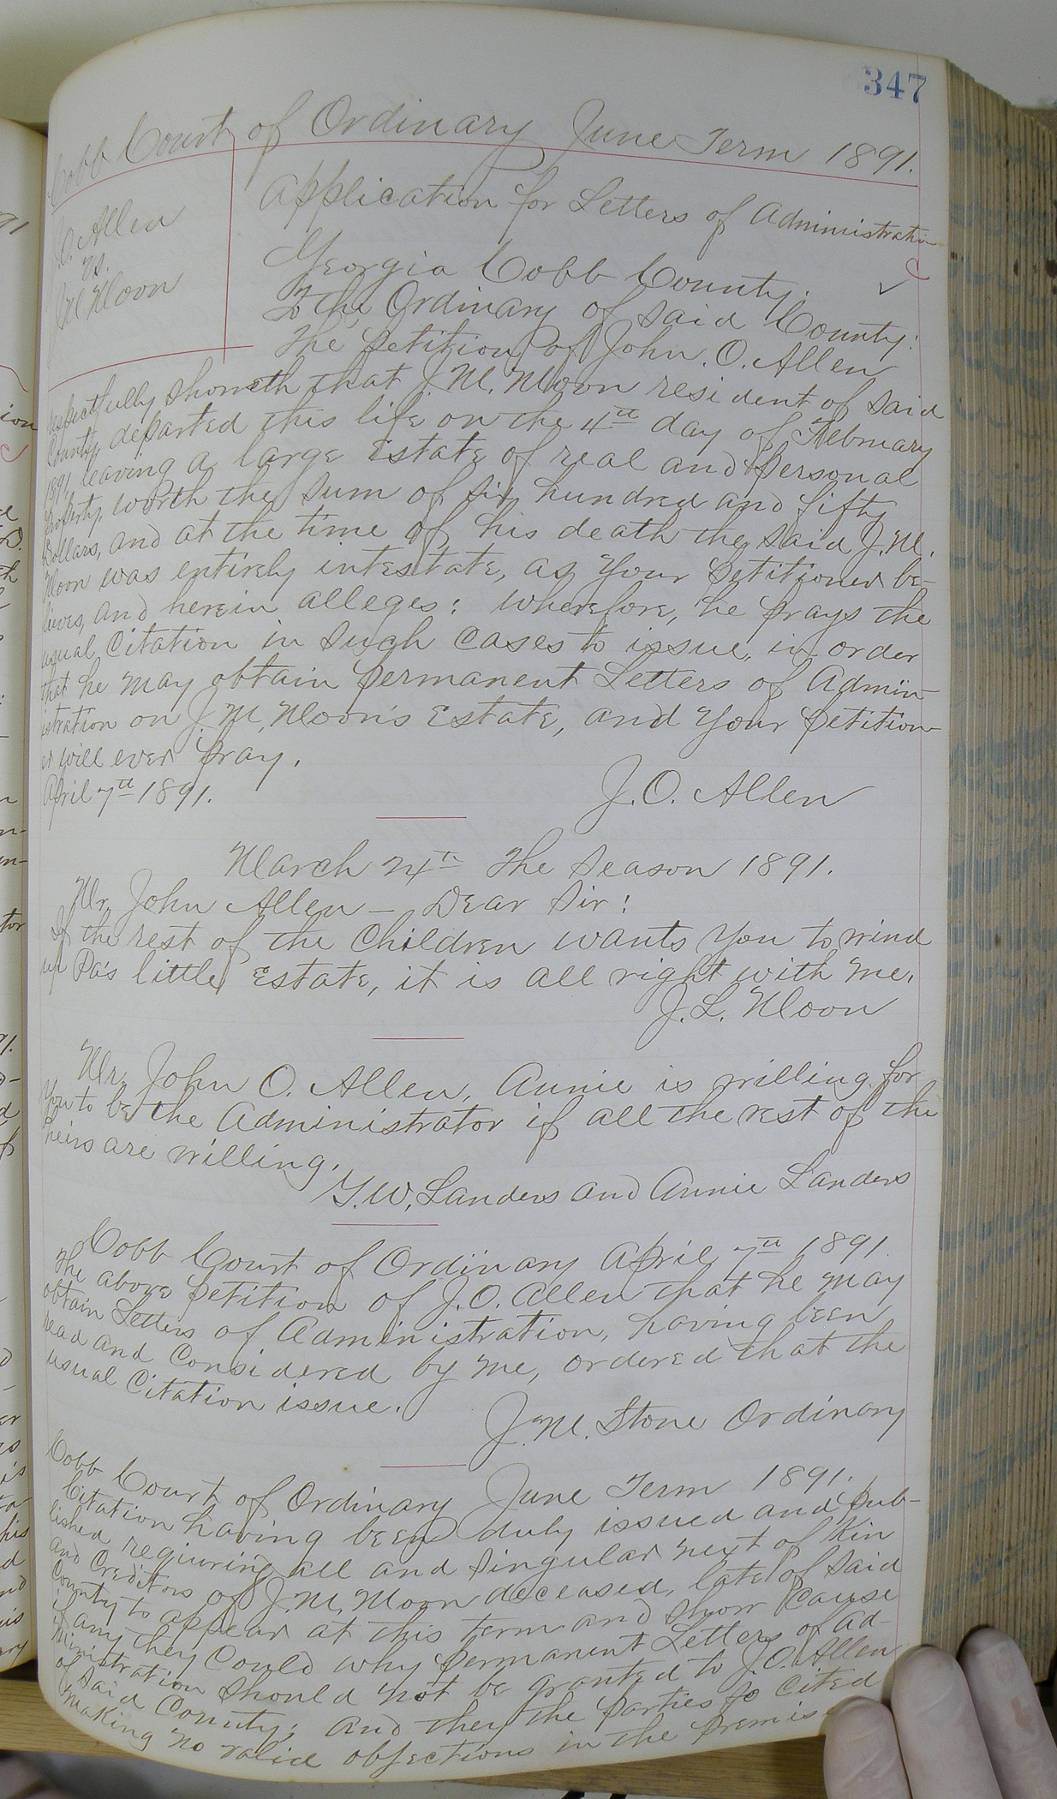 347
Cobb Court of Ordinary June Term 1891.
J.O. Allen
vs.
J.M. Moon
Application for Letters of Administration
Georgia Cobb County.
To the Ordinary of said County:
The Petition of John. O. Allen
respectfully showeth that J. M. Moon resident of said
County, departed this life on the 4th day of February
1891, leaving a large Estate of real and personal
property, worth the sum of six hundred and fifty
Dollars, and at the time of his death the said J.M.
Moon was entirely intestate, as your petitioner be-
lieves, and herein alleges: wherefore, he prays the
usual Citation in such cases to issue, in order
that he may obtain permanent Letters of Admin-
istration on J. M. Moon's Estate, and your petition-
er will ever pray.
April 7th 1891.
J. O. Allen
March 24th The season 1891.
Mr. John Allen - Dear Sir:
If the rest of the children wants you to wind
up Pa's little Estate, it is all right with me.
J. L. Moon
Mr. John O. Allen, Annie is willing for
you to be the Administrator if all the rest of the
heirs are willing.
G. W. Landers and Annie Landers
Cobb Court of Ordinary April 7th 1891.
The above petition of J. O. Allen that he may
obtain Letters of Administration, having been
read and considered by me, ordered that the
usual Citation issue.
J. M. Stone Ordinary
Cobb Court of Ordinary June Term 1891.
Citation having been duly issued and pub-
lished requiring all and singular next of Kin
and Creditors of J. M. Moon deceased, late of said
County to appear at this term and show cause
if any they could why permanent Letters of Ad-
ministration should not be granted to J. O. Allen
of said County; and they the parties so cited
making no valid objections in the